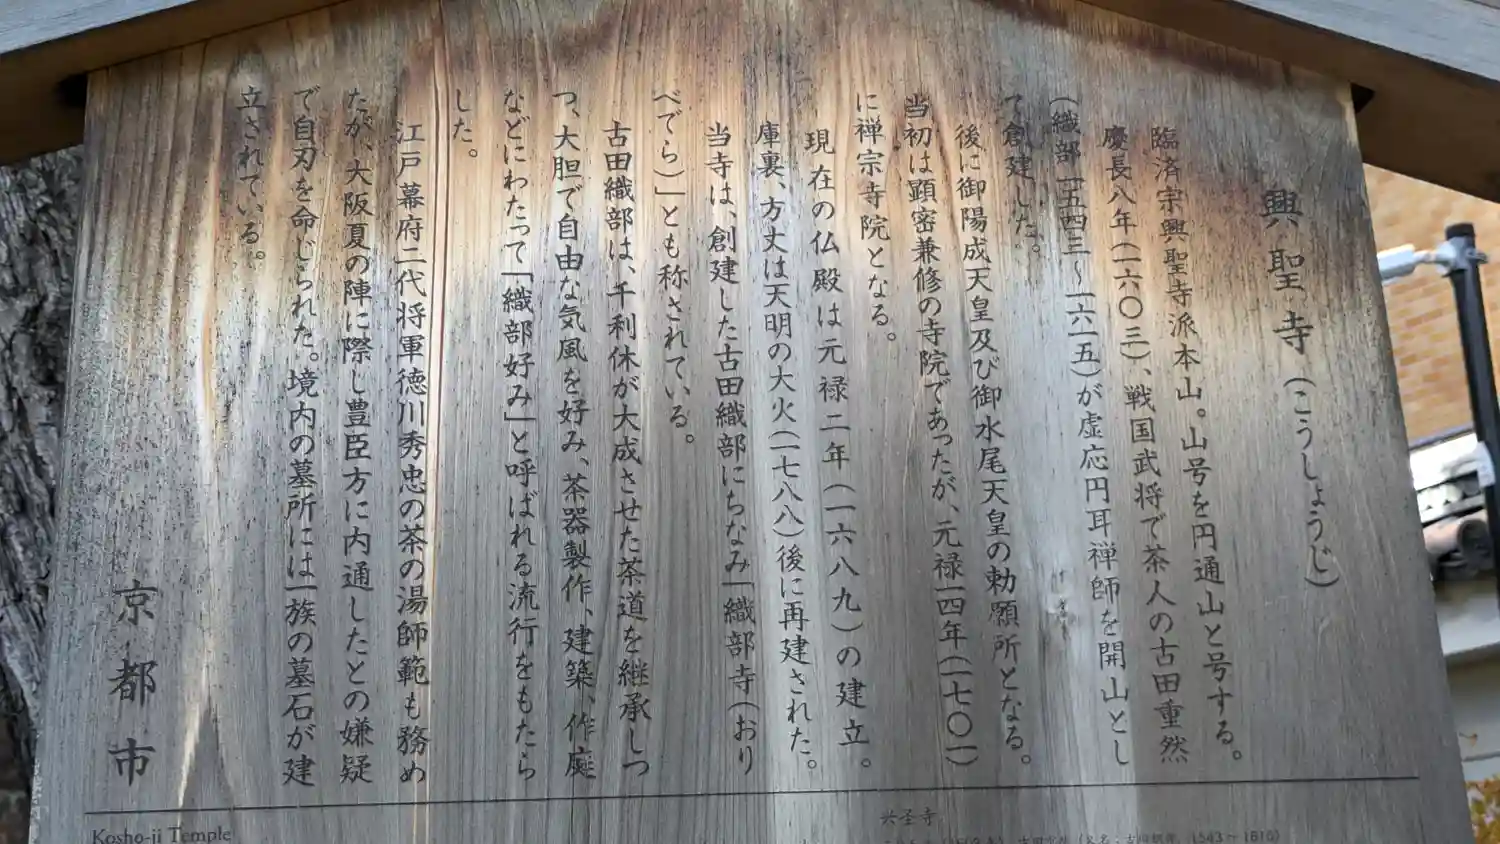 興聖寺(こうしょうじ)
臨済宗興聖寺派本山。山号を円通山と号する。
慶長八年(一六〇三)、戦国武将で茶人の古田重然
(織部 一五四三〜一六一五)が虚応円耳禅師を開山とし
て創建した。
後に御陽成天皇及び御水尾天皇の勅願所となる。
当初は顕密兼修の寺院であったが、元禄一四年(一七〇一)
に禅宗寺院となる。
現在の仏殿は元禄二年(一六八九)の建立。
庫裏、方丈は天明の大火(一七八八)後に再建された。
当寺は、創建した古田織部にちなみ「織部寺(おり
べでら)」とも称されている。
古田織部は、千利休が大成させた茶道を継承しつ
つ、大胆で自由な気風を好み、茶器製作、建築、作庭
などにわたって「織部好み」と呼ばれる流行をもたら
した。
江戸幕府二代将軍徳川秀忠の茶の湯師範も務め
たが、大阪夏の陣に際し豊臣方に内通したとの嫌疑
で自刃を命じられた。境内の墓所には一族の墓石が建
立されている。
京都市
Kosho-ji Temple
兴圣寺